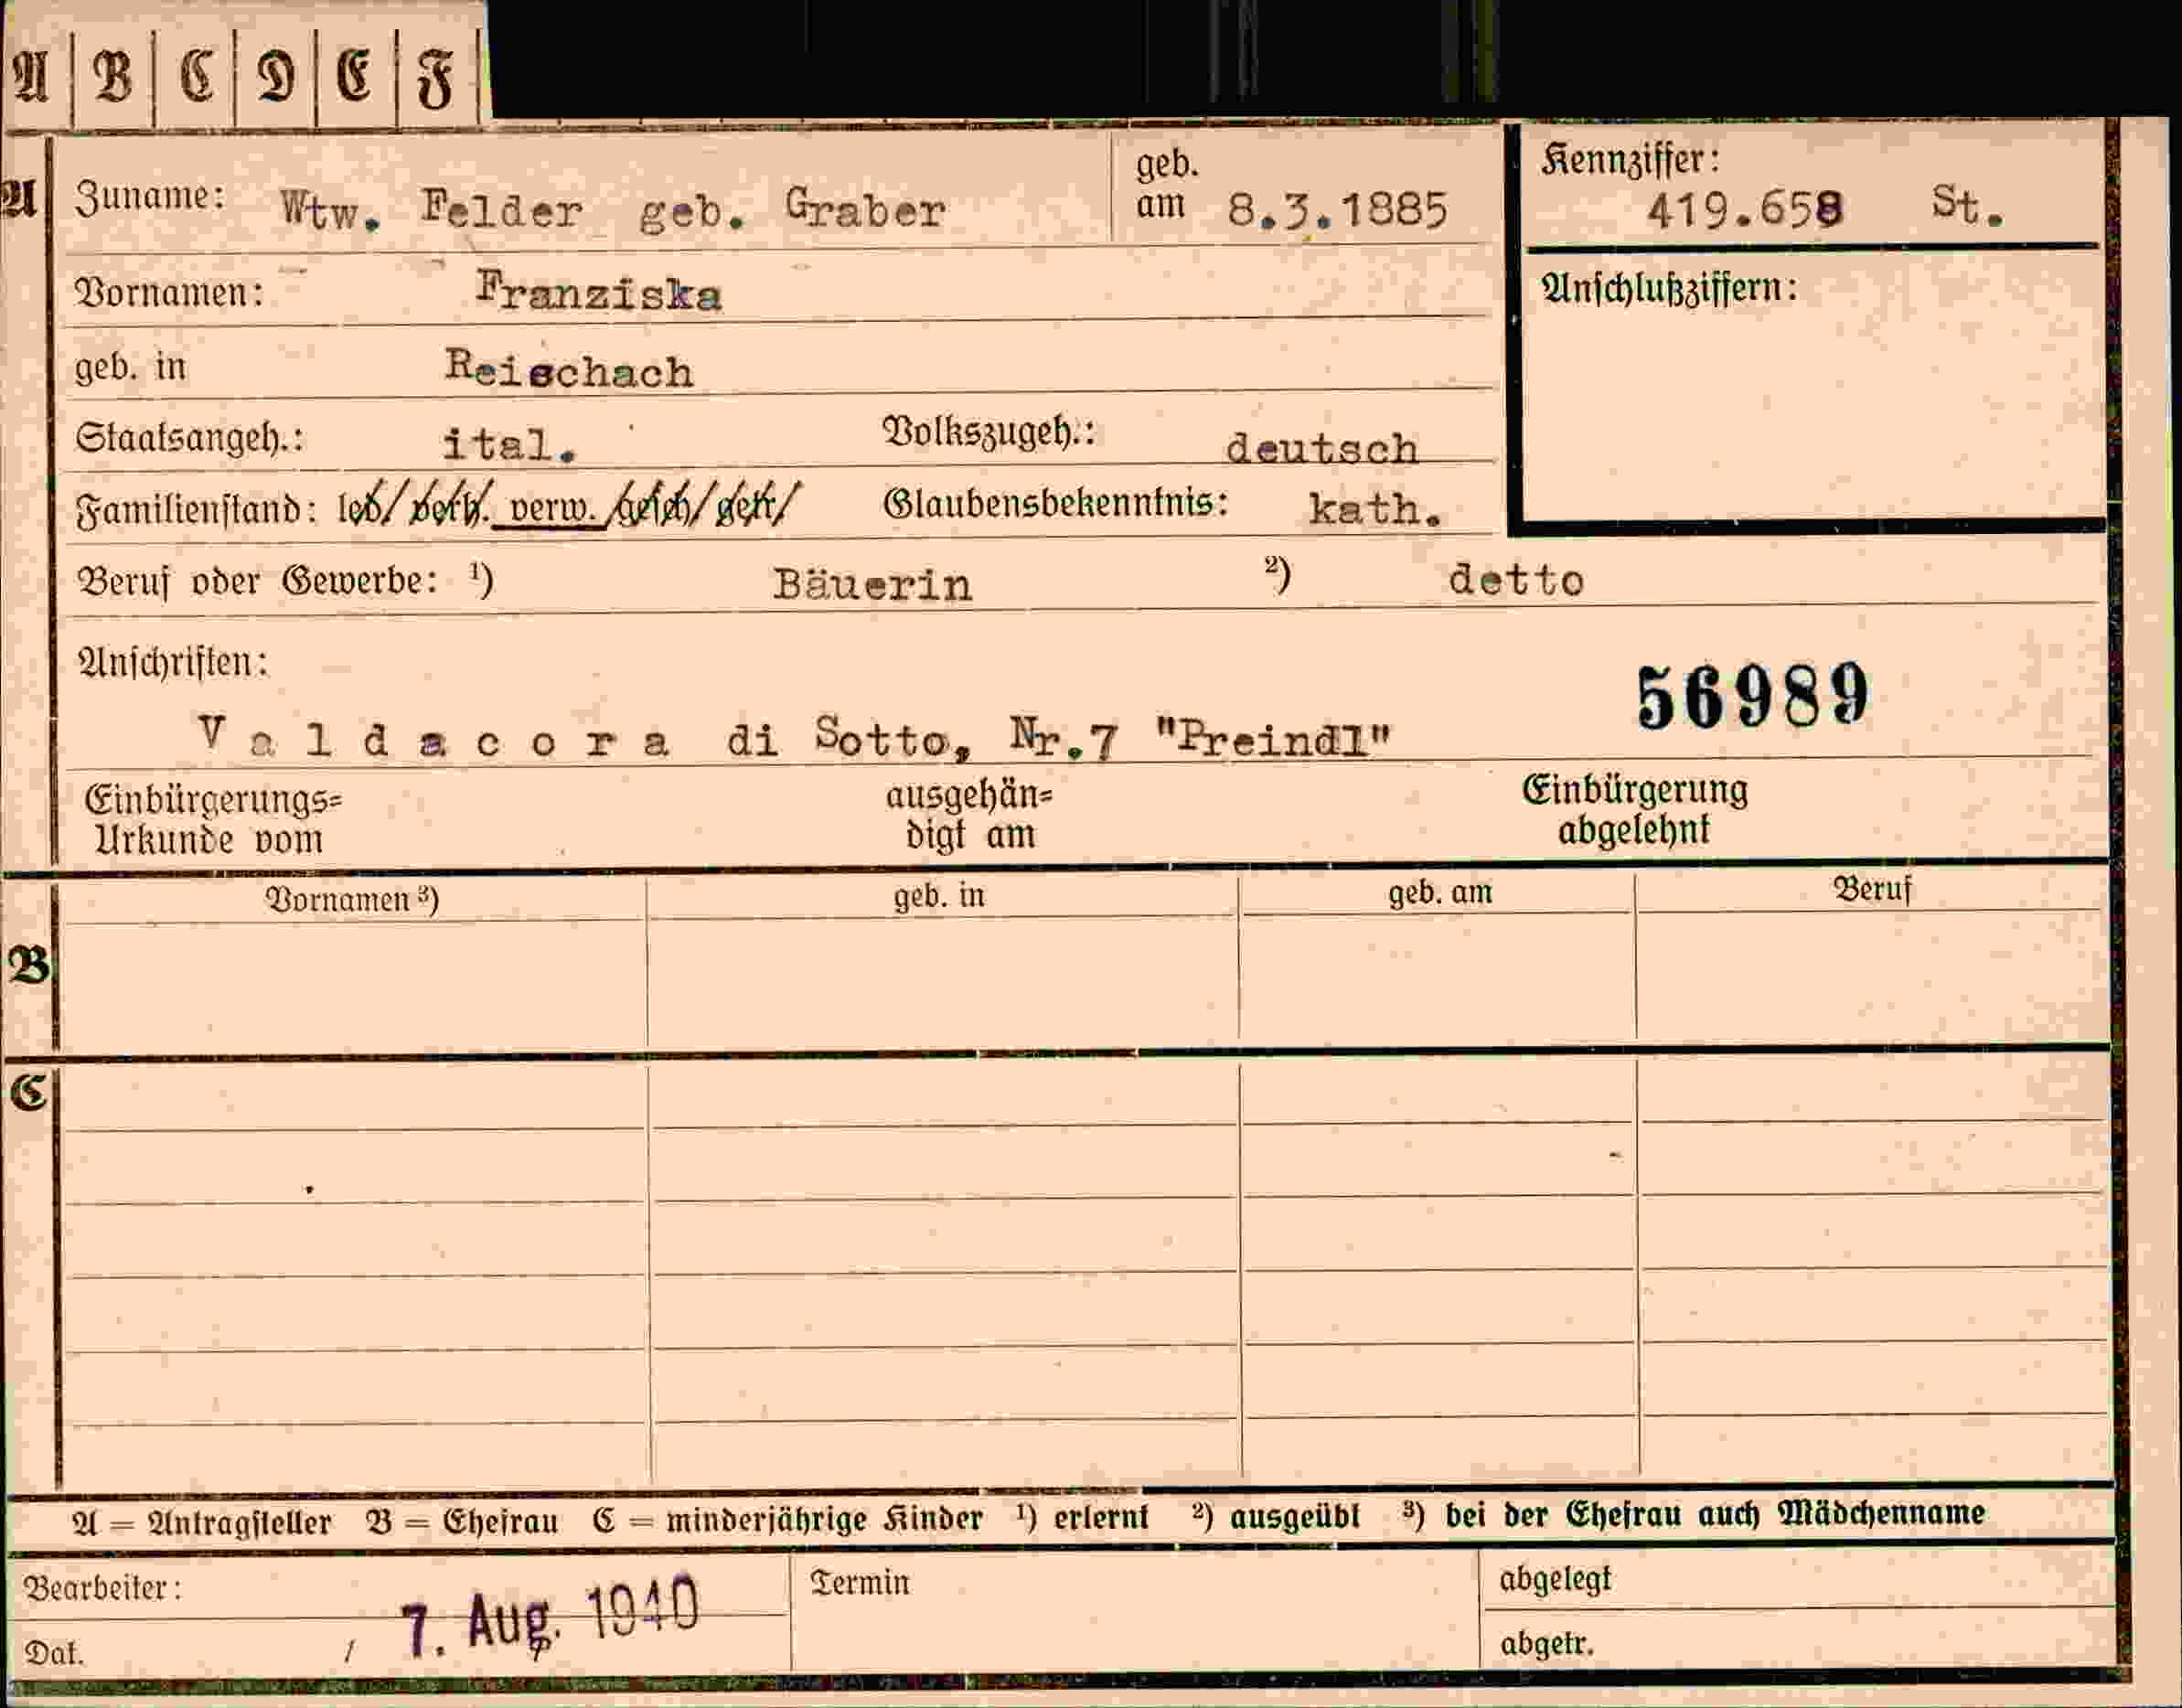 A B C D E F
A Zuname: Wtw. Felder geb. Graber geb. am 8.3.1885 Kennziffer: 419.658 St.
Vornamen: Franziska Anschlußziffern:
geb. in Reischach
Staatsangeh.: ital. Volkszugeh.: deutsch
Familienstand: led/ verh. verw. /gesch/ getr/ Glaubensbekenntnis: kath.
Beruf oder Gewerbe: ¹) Bäuerin ²) detto
Anschriften: 56989
Valdacora di Sotto, Nr.7 "Preindl"
Einbürgerungs= ausgehän= Einbürgerung
Urkunde vom digt am abgelehnt
Vornamen ³) geb. in geb. am Beruf
B
C
A = Antragsteller B = Ehefrau C = minderjährige Kinder ¹) erlernt ²) ausgeübt ³) bei der Ehefrau auch Mädchenname
Bearbeiter: Termin abgelegt
Dat. / 7. Aug. 1940 abgetr.